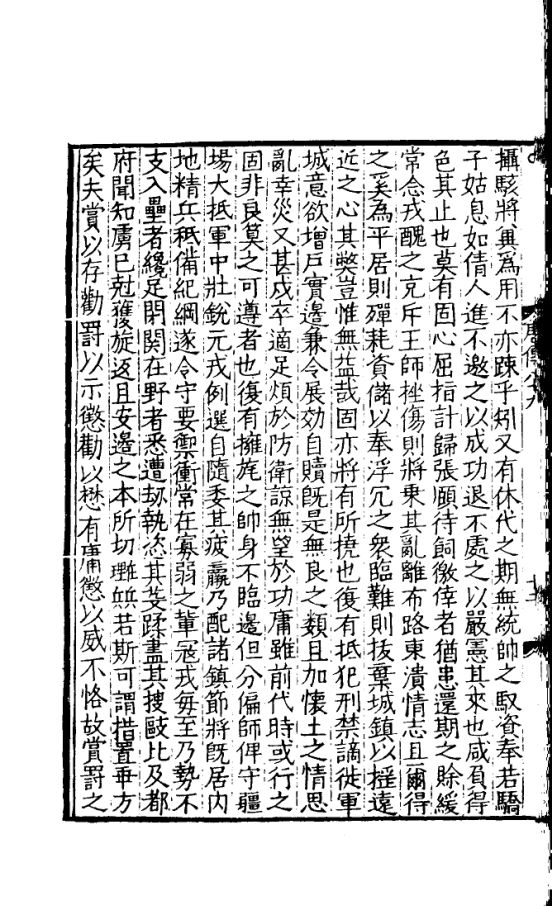 攝駭將冀爲用不亦踈乎矧又有休代之期無統帥之馭資奉若驕
子姑息如倩人進不邀之以成功退不處之以嚴憲其來也咸負得
色其止也莫有固心屈指計歸張願待飼徼倖者猶患還期之賖緩
常念戎醜之充斥王師挫傷則將乗其亂離布路東潰情志且爾得
之奚為平居則殫耗資儲以奉浮冗之衆臨難則抜棄城鎮以揺遠
近之心其獘豈惟無益哉固亦將有所撓也復有抵犯刑禁謫徙軍
城意欲增戶實邊兼令展効自贖旣是無良之類且加懷土之情思
亂幸災又甚戍卒適足煩於防衛諒無望於功庸雖前代時或行之
固非良莫之可遵者也復有擁旄之帥身不臨邊但分偏師俾守疆
場大抵軍中壯銳元戎例選自隨委其疲羸乃配諸鎮節將旣居内
地精兵秪備紀綱遂令守要禦衝常在寡弱之輩寇戎每至乃勢不
支入壘者纔足閉関在野者悉遭刼執恣其芟蹂盡其搜敺比及都
府聞知虜已尅獲旋返且安邊之本所切理兵若斯可謂措置乖方
矣夫賞以存勸罸以示懲勸以懋有庸懲以威不恪故賞罸之